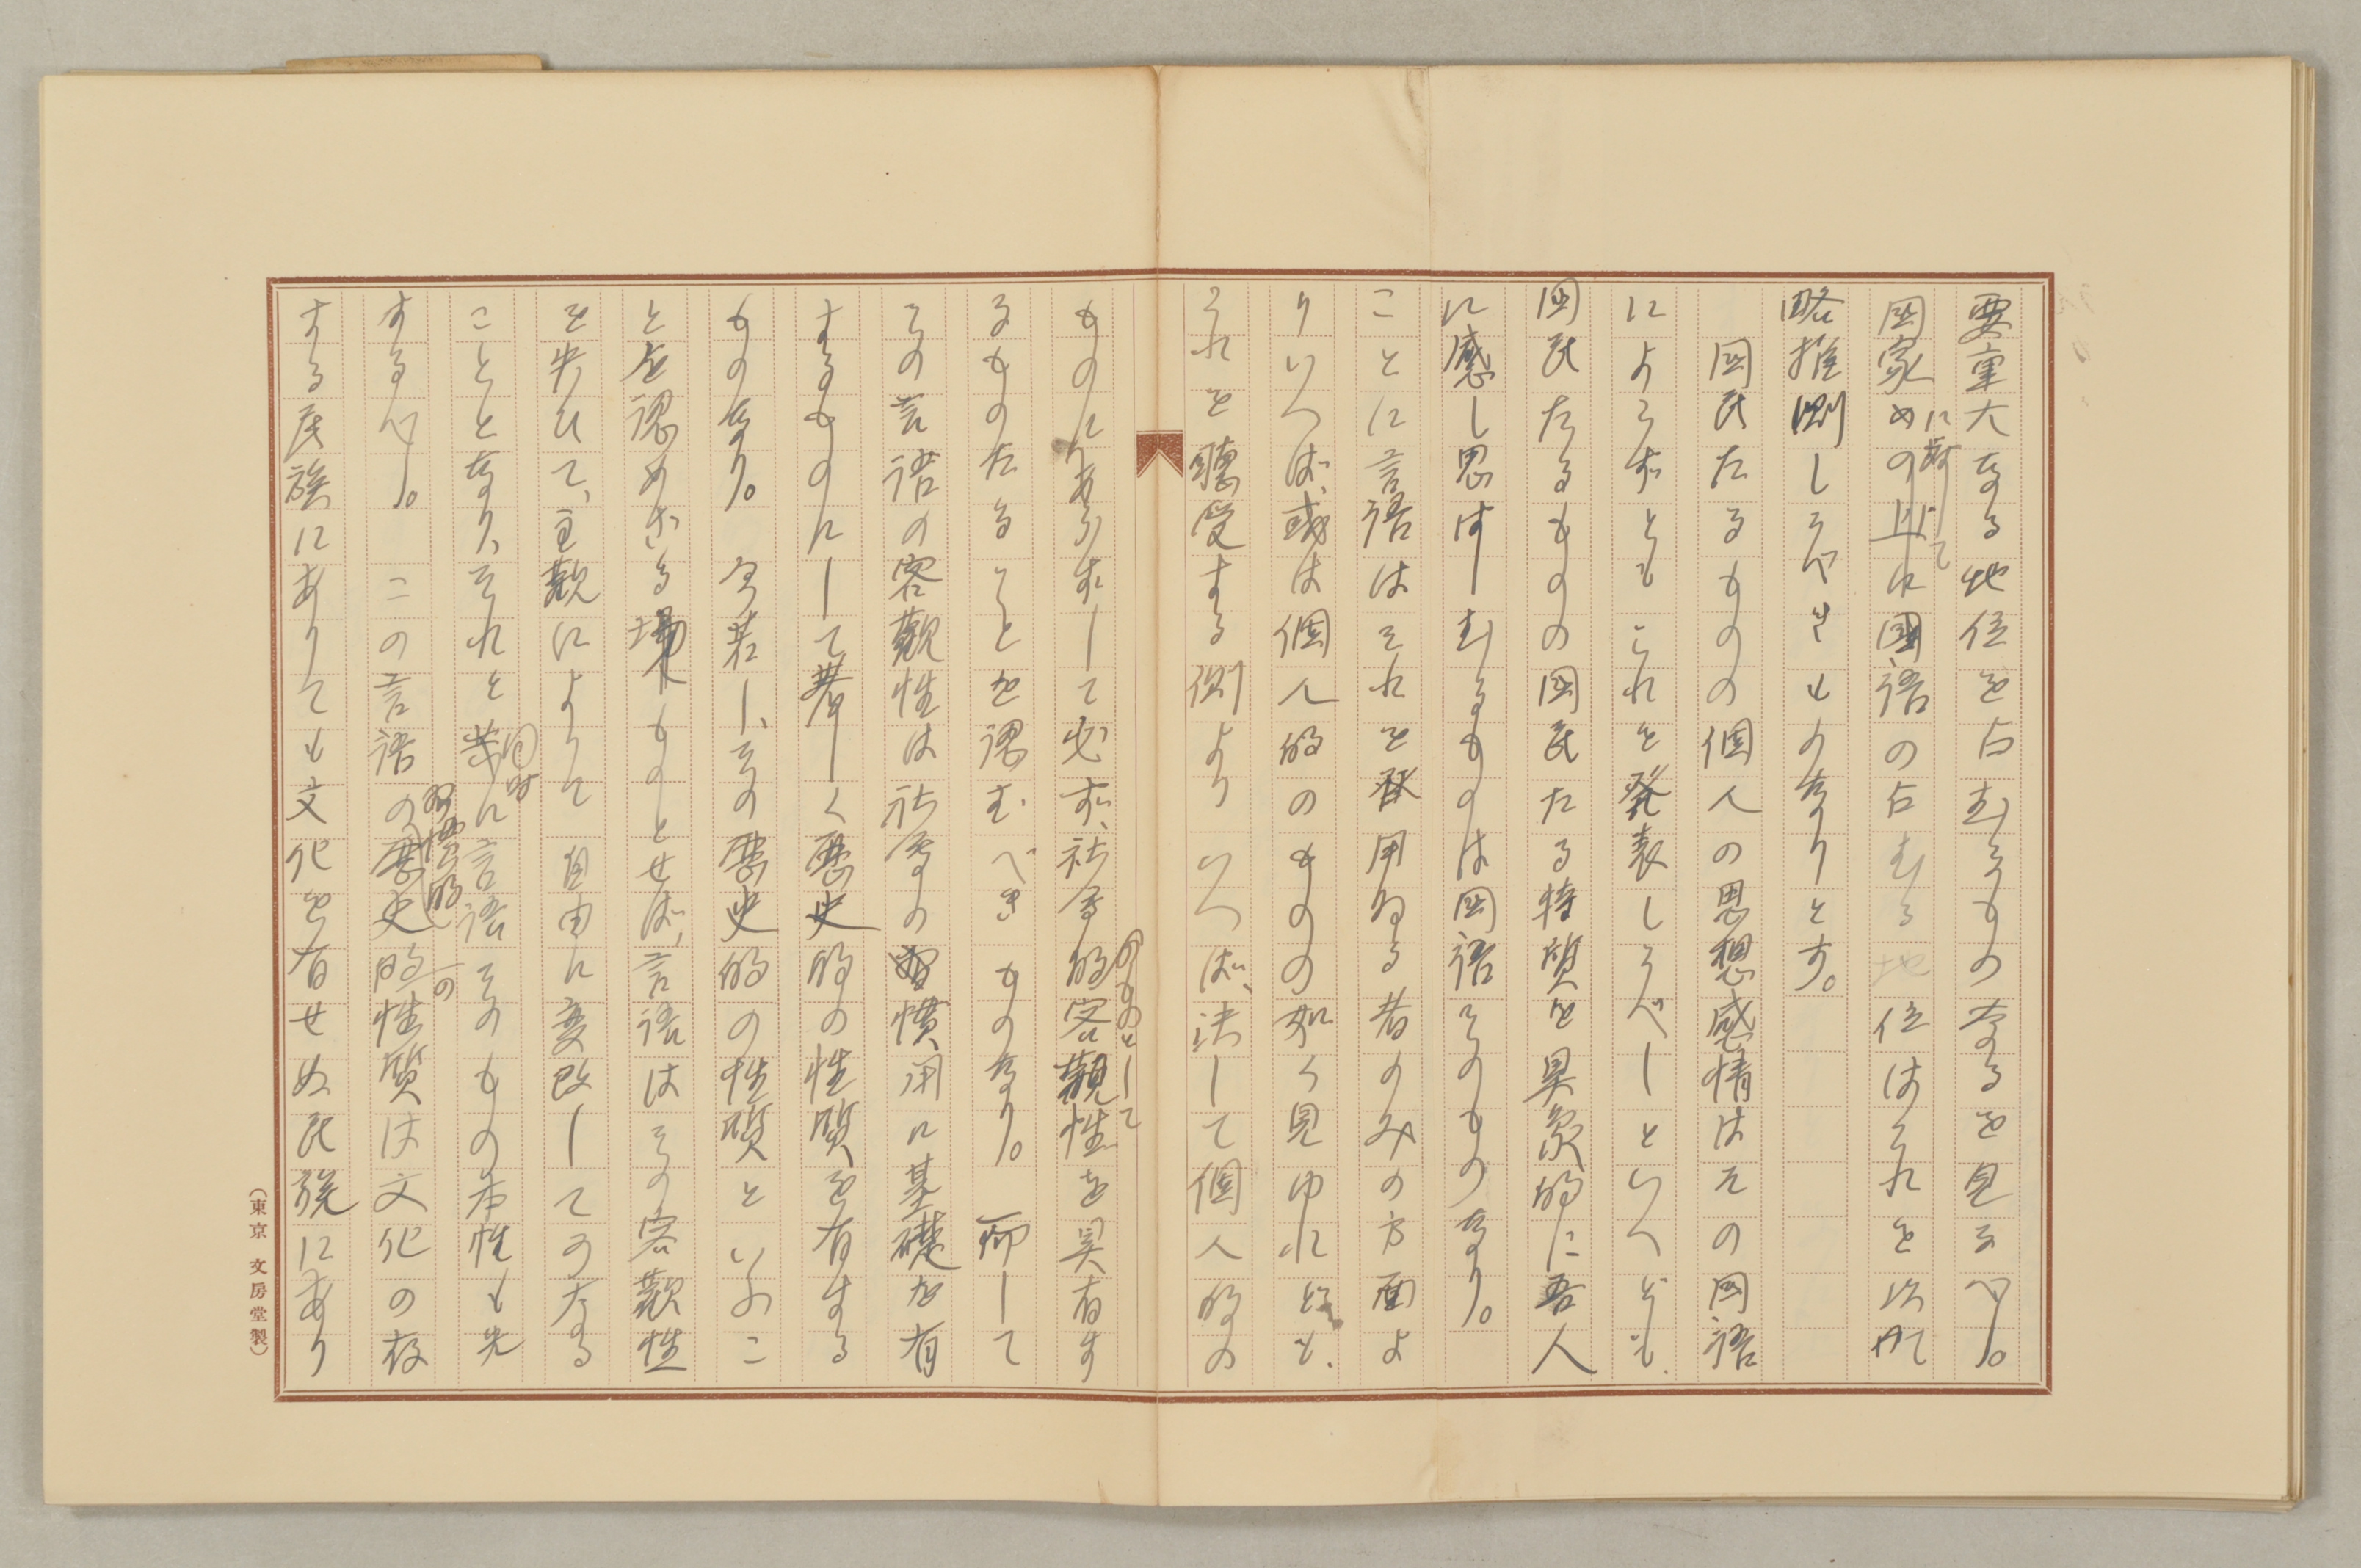 要重大なる地位を占むるものなるを見るべし。
国家に於ての上に国語の占むる地位はそれを以て
略推測しうべきものなりとす。
国民たるものの個人の思想感情はその国語
によらずともこれを発表しうべしといへども、
国民たるものの国民たる特質を具象的に吾人
に感し思はしむるものは国語そのものなり。
ことに言語はそれを用ゐる者のみの方面よ
りいへば、或は個人的のものの如く見ゆれども、
それを聴受する側よりいへば、決して個人的の
ものにあらずして必ず、社会的のものとして客観性を具有す
るものたることを認むべきものなり。而して
その言語の客観性は社会の習慣に基礎を有
するものにして著しく歴史的の性質を有する
ものなり。今若し、その歴史的の性質といふこ
とを認めざるものとせば、言語はその客観性
を失ひて、主観によりて自由に変改してのなる
こととなり、それと同時に言語そのもの本性も失
するべし。この言語の習慣的歴史的の性質は文化の存
する民族にありても文化を有せぬ民族にあり
(東京 文房堂製)